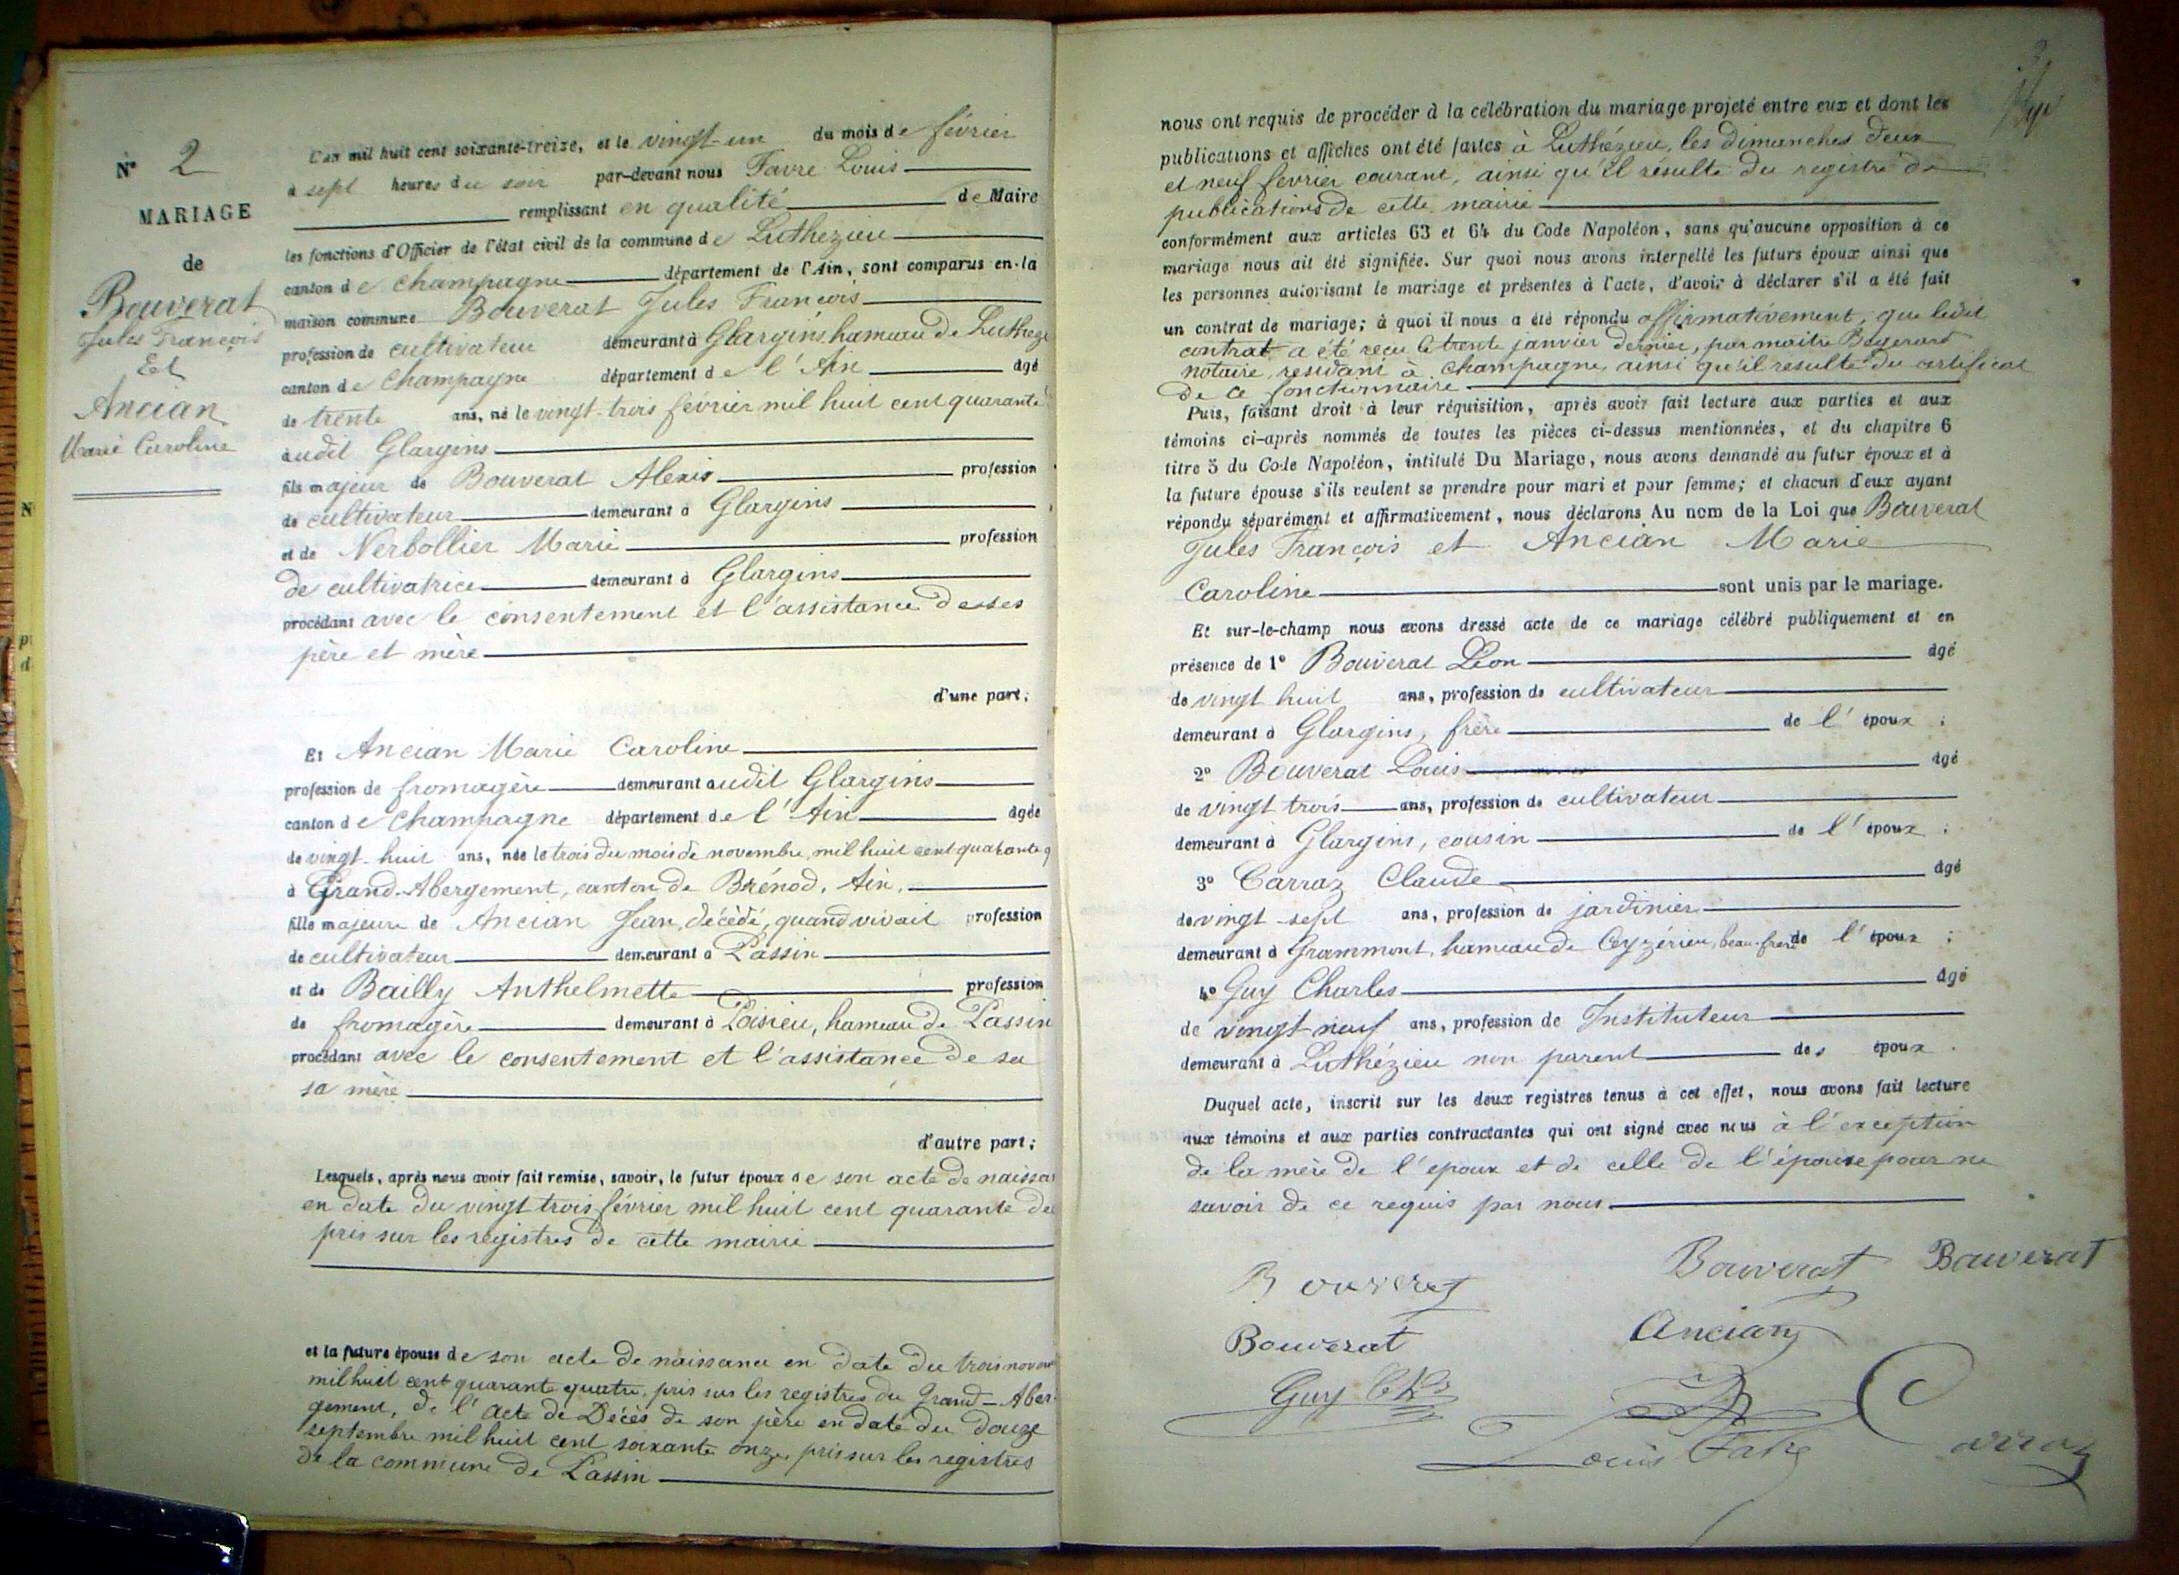 N° 2
MARIAGE
de
Bouverat
Jules François
Et
Ancian
Marie Caroline
L'an mil huit cent soixante-treize, et le vingt-un du mois de février
à sept heures du soir par-devant nous Favre Louis
remplissant en qualité de Maire
les fonctions d'Officier de l'état civil de la commune de Luthezieu
canton de Champagne département de l'Ain, sont comparus en la
maison commune Bouverat Jules François
profession de cultivateur demeurant à Glargins, hameau de Luthezi
canton de Champagne département de l'Ain agé
de trente ans, né le vingt-trois février mil huit cent quarante
audit Glargins
fils majeur de Bouverat Alexis profession
de cultivateur demeurant à Glargins
et de Nerbollier Marie profession
de cultivatrice demeurant à Glargins
procédant avec le consentement et l'assistance de ses
père et mère
d'une part;
Et Ancian Marie Caroline
profession de fromagère demeurant audit Glargins
canton de Champagne département de l'Ain agée
de vingt-huit ans, née le trois du mois de novembre, mil huit cent quarante q
à Grand-Abergement, canton de Brénod, Ain,
fille majeure de Ancian Jean, décédé, quand vivait profession
de cultivateur demeurant à Passin
et de Bailly Anthelmette profession
de fromagère demeurant à Poisieu, hameau de Passin
procédant avec le consentement et l'assistance de sa
sa mère
d'autre part;
Lesquels, après nous avoir fait remise, savoir, le futur époux de son acte de naissa
en date du vingt trois février mil huit cent quarante de
pris sur les registres de cette mairie
et la future épouse de son acte de naissance en date du trois novem
mil huit cent quarante quatre, pris sur les registres du Grand-Aber-
gement, de l'acte de Décès de son père en date du douze
septembre mil huit cent soixante onze, pris sur les registres
de la commune de Passin
nous ont requis de procéder à la célébration du mariage projeté entre eux et dont les
publications et affiches ont été faites à Luthézieu, les dimanches deux
et neuf fevrier courant, ainsi qu'il résulte du registre de
publications de cette mairie
conformément aux articles 63 et 64 du Code Napoléon, sans qu'aucune opposition à ce
mariage nous ait été signifiée. Sur quoi nous avons interpellé les futurs époux ainsi que
les personnes autorisant le mariage et présentes à l'acte, d'avoir à déclarer s'il a été fait
un contrat de mariage; à quoi il nous a été répondu affirmativement, que ledit
contrat a été reçu le trente janvier dernier, par maître
notaire, résidant à Champagne, ainsi qu'il résulte du certificat
de ce fonctionnaire
Puis, faisant droit à leur réquisition, après avoir fait lecture aux parties et aux
témoins ci-après nommés de toutes les pièces ci-dessus mentionnées, et du chapitre 6
titre 5 du Code Napoléon, intitulé Du Mariage, nous avons demandé au futur époux et à
la future épouse s'ils veulent se prendre pour mari et pour femme; et chacun d'eux ayant
répondu séparément et affirmativement, nous déclarons Au nom de la Loi que Bouverat
Jules François et Ancian Marie
Caroline sont unis par le mariage.
Et sur-le-champ nous avons dressé acte de ce mariage célébré publiquement et en
présence de 1° Bouverat Léon agé
de vingt huit ans, profession de cultivateur
demeurant à Glargins, frère de l'époux;
2° Bouverat Louis agé
de vingt trois ans, profession de cultivateur
demeurant à Glargins, cousin de l'époux;
3° Carraz Claude agé
de vingt-sept ans, profession de jardinier
demeurant à Grammont, hameau de Ceyzérieu, beau-frère de l'époux;
4° Guy Charles agé
de vingt-neuf ans, profession de Instituteur
demeurant à Luthézieu non parent des époux.
Duquel acte, inscrit sur les deux registres tenus à cet effet, nous avons fait lecture
aux témoins et aux parties contractantes qui ont signé avec nous à l'exception
de la mère de l'époux et de celle de l'épouse pour ne
savoir de ce requis par nous.
Bouverat Bouverat Bouverat
Bouverat Ancian
Guy Chs
Louis Favre Carraz